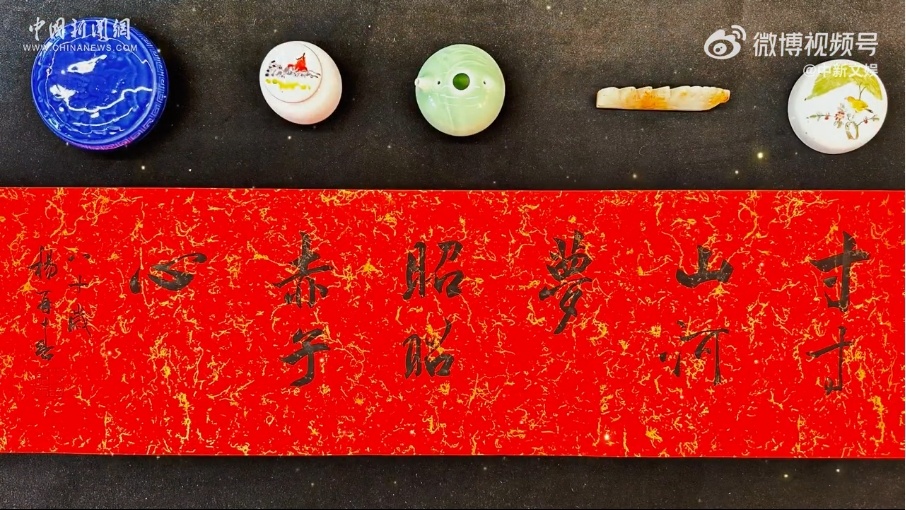 中国新闻網
WWW.CHINANEWS.COM
微博视频号
@中新文娱
寸寸
山河
夢
昭昭
赤子
心
八十歲
楊再春